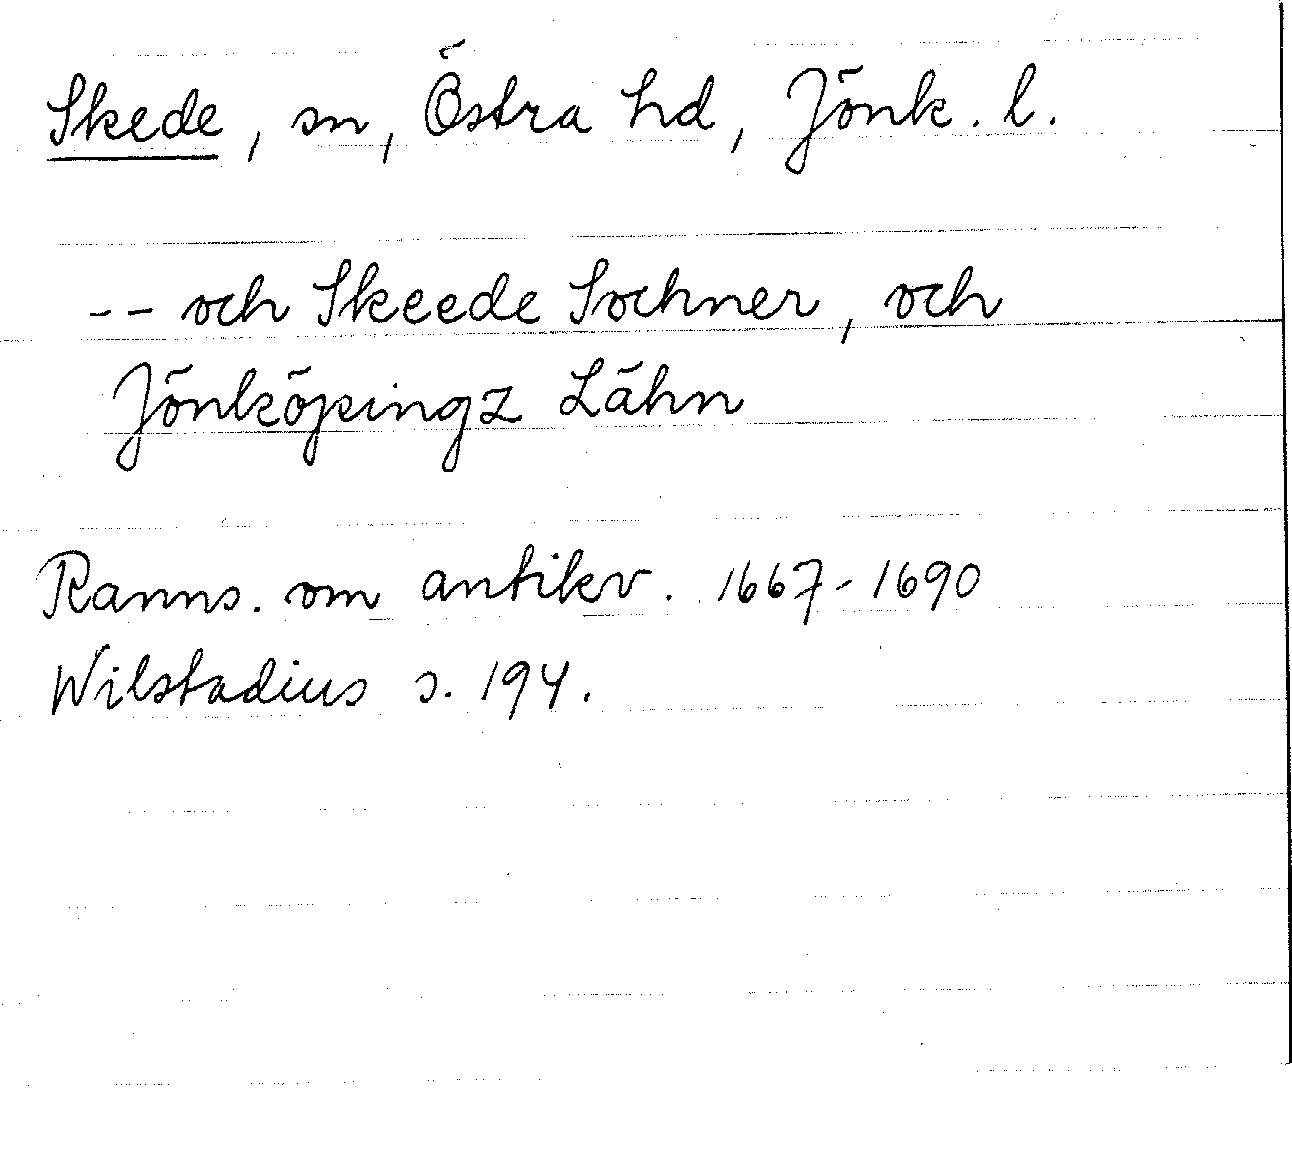 Skede, sn, Östra hd, Jönk. l.
-- och Skeede Sochner, och
Jönköpingz Lähn
Ranns. om antikv. 1667-1690
Wilstadius s. 194.